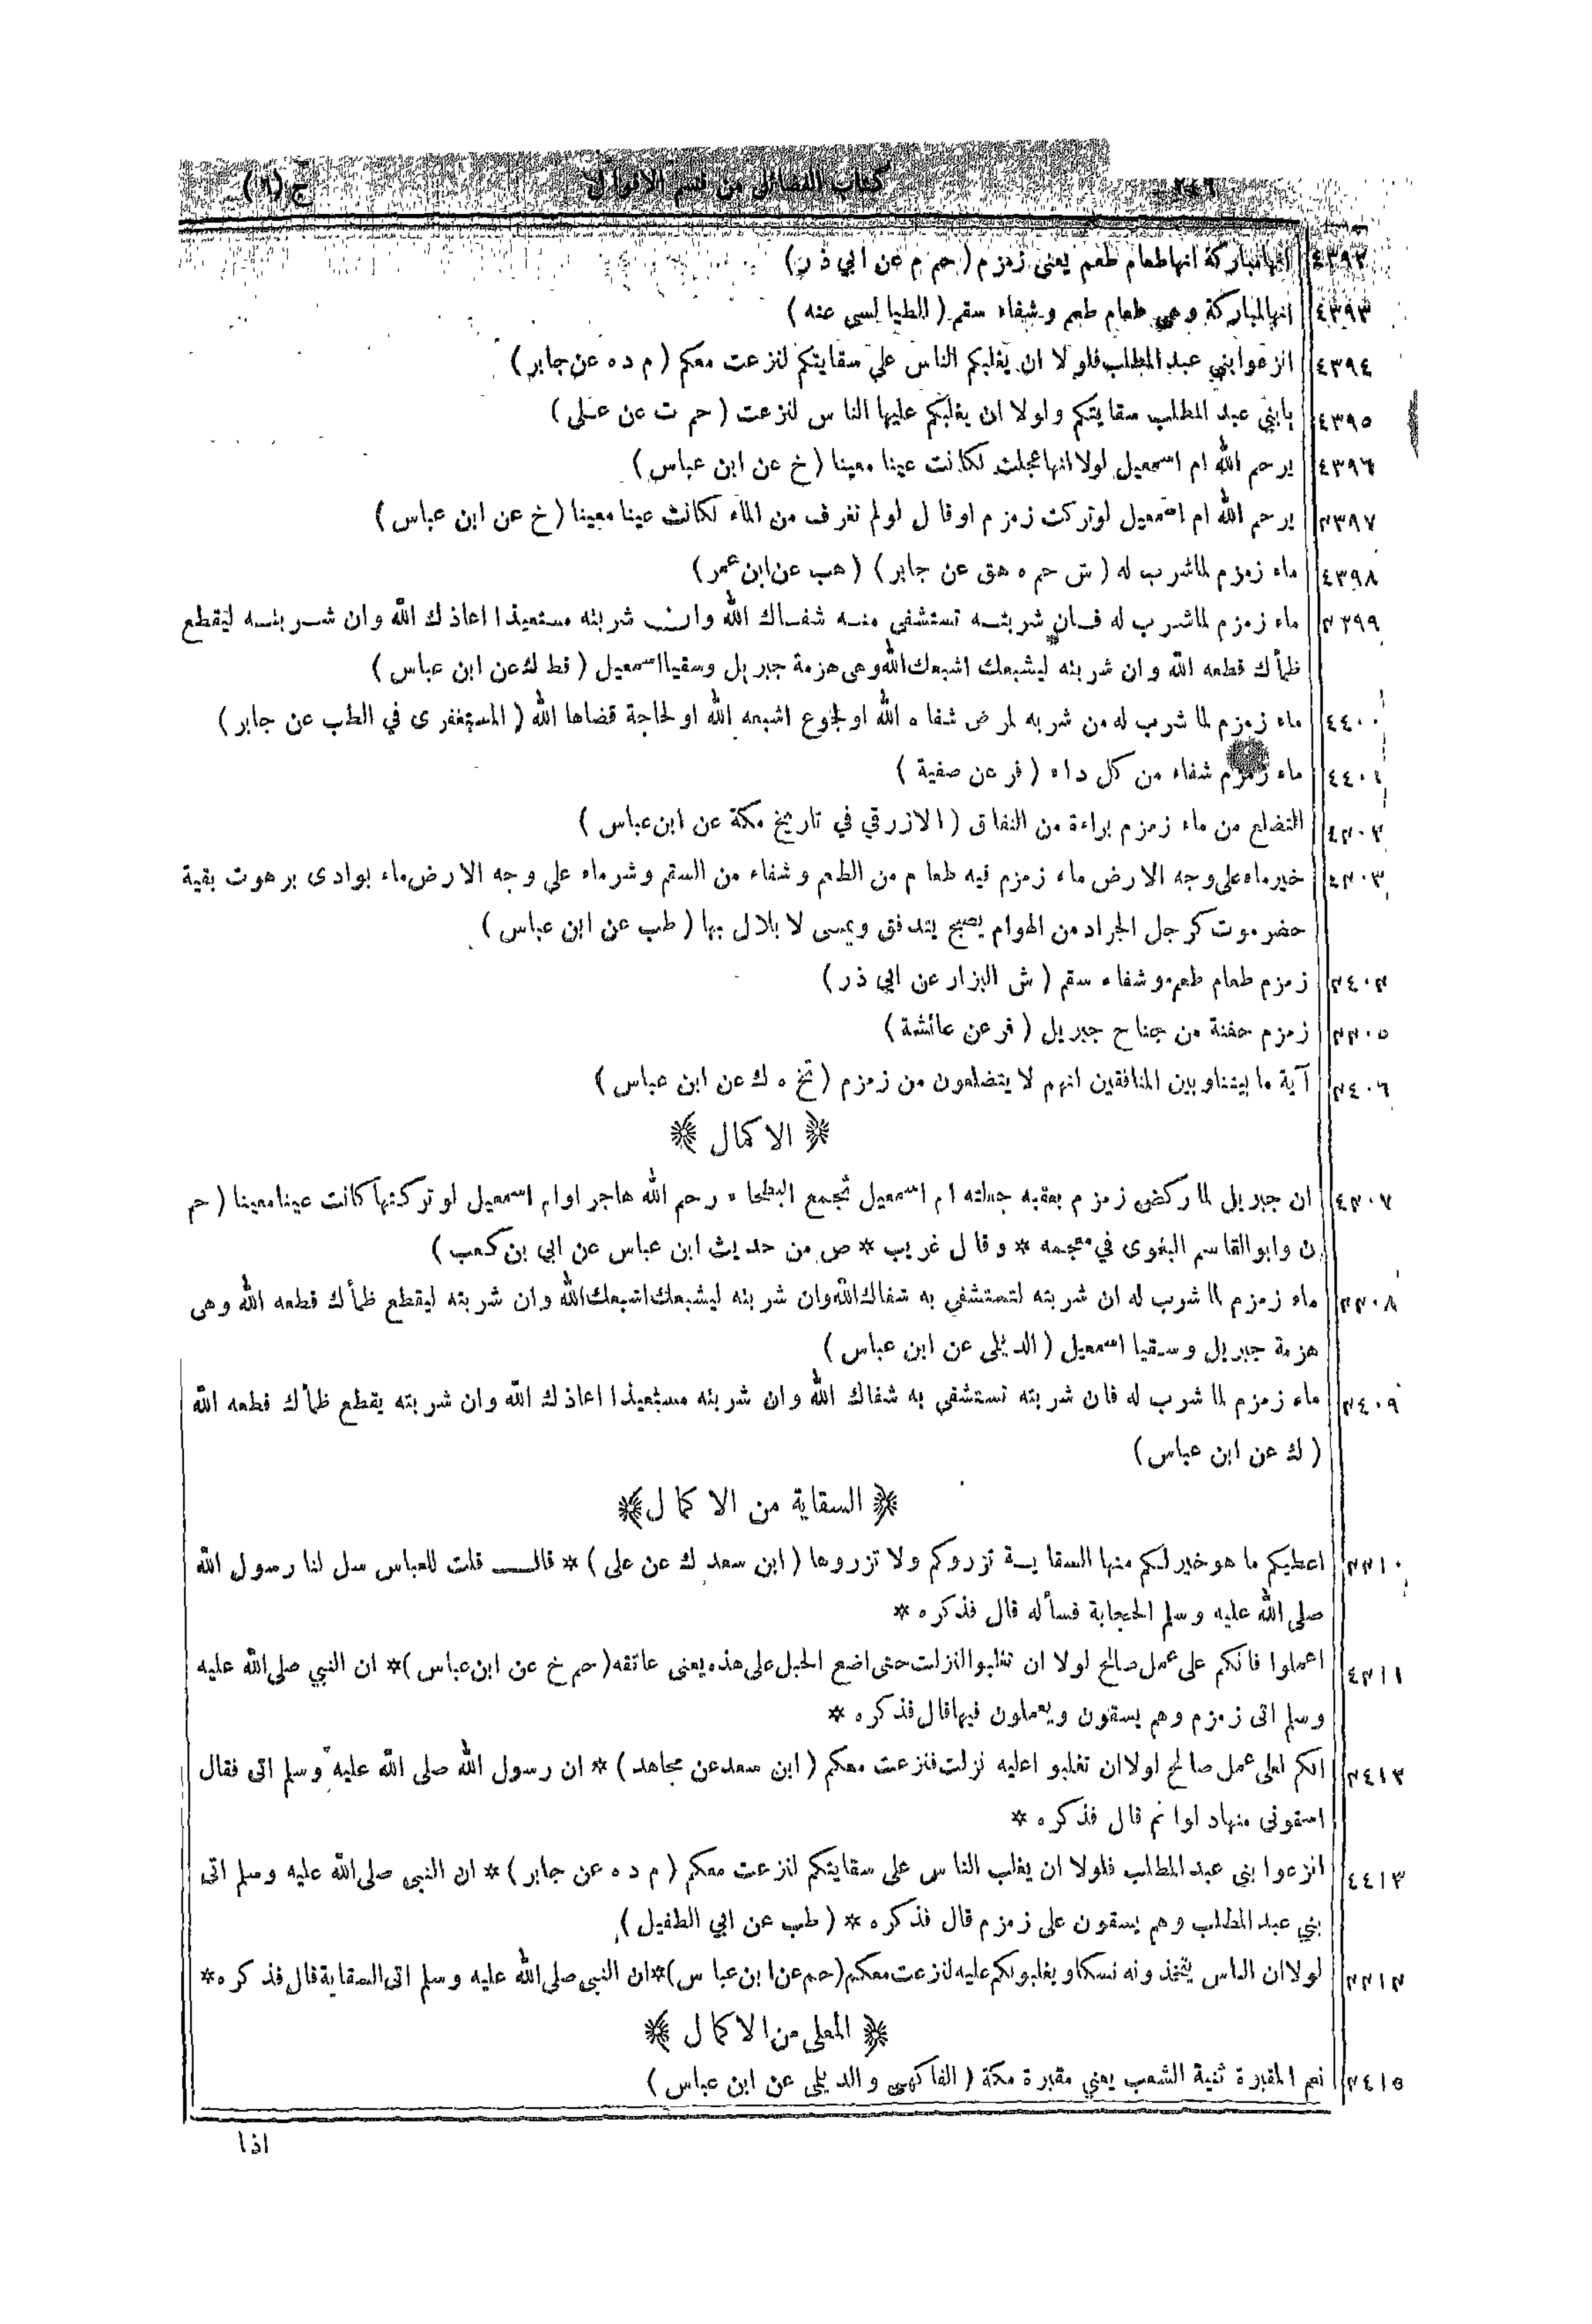 كتاب الفضائل من قسم الاقوال ج (٦)
٤٣٩٢ انهامباركة انهاطعام طعم يعنى زمزم (حم م عن ابي ذر)
٤٣٩٣ انهالمباركة وهي طعام طعم وشفاء سقم (الطيا لسى عنه)
٤٣٩٤ انزعوابني عبد المطلب فلولا ان يغلبكم الناس علي سقايتكم لنزعت معكم (م د ه عن جابر)
٤٣٩٥ يابني عبد المطلب سقايتكم ولولا ان يغلبكم عليها الناس لنزعت (حم ت عن على)
٤٣٩٦ يرحم الله ام اسمعيل لولا انهاعجلت لكانت عينا معينا (خ عن ابن عباس)
٤٣٩٧ يرحم الله ام اسمعيل لوتركت زمزم اوقال لولم تغرف من الماء لكانت عينا معينا (خ عن ابن عباس)
٤٣٩٨ ماء زمزم لماشرب له (ش حم ه هق عن جابر) (هب عن ابن عمر)
٤٣٩٩ ماء زمزم لماشرب له فان شربته تستشفى منه شفاك الله وان شربته مستعيذا اعاذك الله وان شربته ليقطع
ظمأك قطعه الله وان شربته ليشبعك اشبعك الله وهى هزمة جبريل وسقيا اسمعيل (قط ك عن ابن عباس)
٤٤٠٠ ماء زمزم لما شرب له من شربه لمرض شفاه الله او لجوع اشبعه الله او لحاجة قضاها الله (المستغفرى في الطب عن جابر)
٤٤٠١ ماء زمزم شفاء من كل داء (فر عن صفية)
٤٤٠٢ التضلع من ماء زمزم براءة من النفاق (الازرقي في تاريخ مكة عن ابن عباس)
٤٤٠٣ خيرماء على وجه الارض ماء زمزم فيه طعام من الطعم وشفاء من السقم وشرماء علي وجه الارض ماء بوادى برهوت بقية
حضرموت كرجل الجراد من الهوام يصبح يتدفق ويمسى لا بلال بها (طب عن ابن عباس)
٤٤٠٤ زمزم طعام طعم وشفاء سقم (ش البزار عن ابي ذر)
٤٤٠٥ زمزم حفنة من جناح جبريل (فر عن عائشة)
٤٤٠٦ آية ما بيننا وبين المنافقين انهم لا يتضلعون من زمزم (تخ ه ك عن ابن عباس)
﴿ الاكمال ﴾
٤٤٠٧ ان جبريل لما ركض زمزم بعقبه جعلته ام اسمعيل تجمع البطحاء رحم الله هاجر اوام اسمعيل لو تركتها كانت عينا معينا (حم
ن وابوالقاسم البغوى في معجمه * وقال غريب * ص من حديث ابن عباس عن ابي بن كعب)
٤٤٠٨ ماء زمزم لما شرب له ان شربته لتستشفي به شفاك الله وان شربته ليشبعك اشبعك الله وان شربته ليقطع ظمأك قطعه الله وهى
هزمة جبريل وسقيا اسمعيل (الديلمى عن ابن عباس)
٤٤٠٩ ماء زمزم لما شرب له فان شربته تستشفي به شفاك الله وان شربته مستعيذا اعاذك الله وان شربته يقطع ظمأك قطعه الله
(ك عن ابن عباس)
﴿ السقاية من الاكمال ﴾
٤٤١٠ اعطيكم ما هو خير لكم منها السقاية تزروكم ولا تزروها (ابن سعد ك عن على) * قال قلت للعباس سل لنا رسول الله
صلى الله عليه وسلم الحجابة فسأله قال فذكره *
٤٤١١ اعملوا فانكم على عمل صالح لولا ان تغلبوا لنزلت حتى اضع الحبل على هذه يعنى عاتقه (حم خ عن ابن عباس) * ان النبي صلى الله عليه
وسلم اتى زمزم وهم يسقون ويعملون فيها قال فذكره *
٤٤١٢ انكم لعلى عمل صالح لولا ان تغلبوا عليه نزلت فنزعت معكم (ابن سعد عن مجاهد) * ان رسول الله صلى الله عليه وسلم اتى فقال
اسقونى منها دلوا ثم قال فذكره *
٤٤١٣ انزعوا بني عبد المطلب فلولا ان يغلب الناس على سقايتكم لنزعت معكم (م د ه عن جابر) * ان النبي صلى الله عليه وسلم اتى
بني عبد المطلب وهم يسقون على زمزم قال فذكره * (طب عن ابي الطفيل)
٤٤١٤ لولا ان الناس يتخذونه نسكا ويغلبونكم عليه لنزعت معكم (حم عن ابن عباس) * ان النبي صلى الله عليه وسلم اتى السقاية قال فذكره *
﴿ المعلى من الاكمال ﴾
٤٤١٥ نعم المقبرة ثنية الشعب يعني مقبرة مكة (الفاكهى والديلمى عن ابن عباس)
اذا